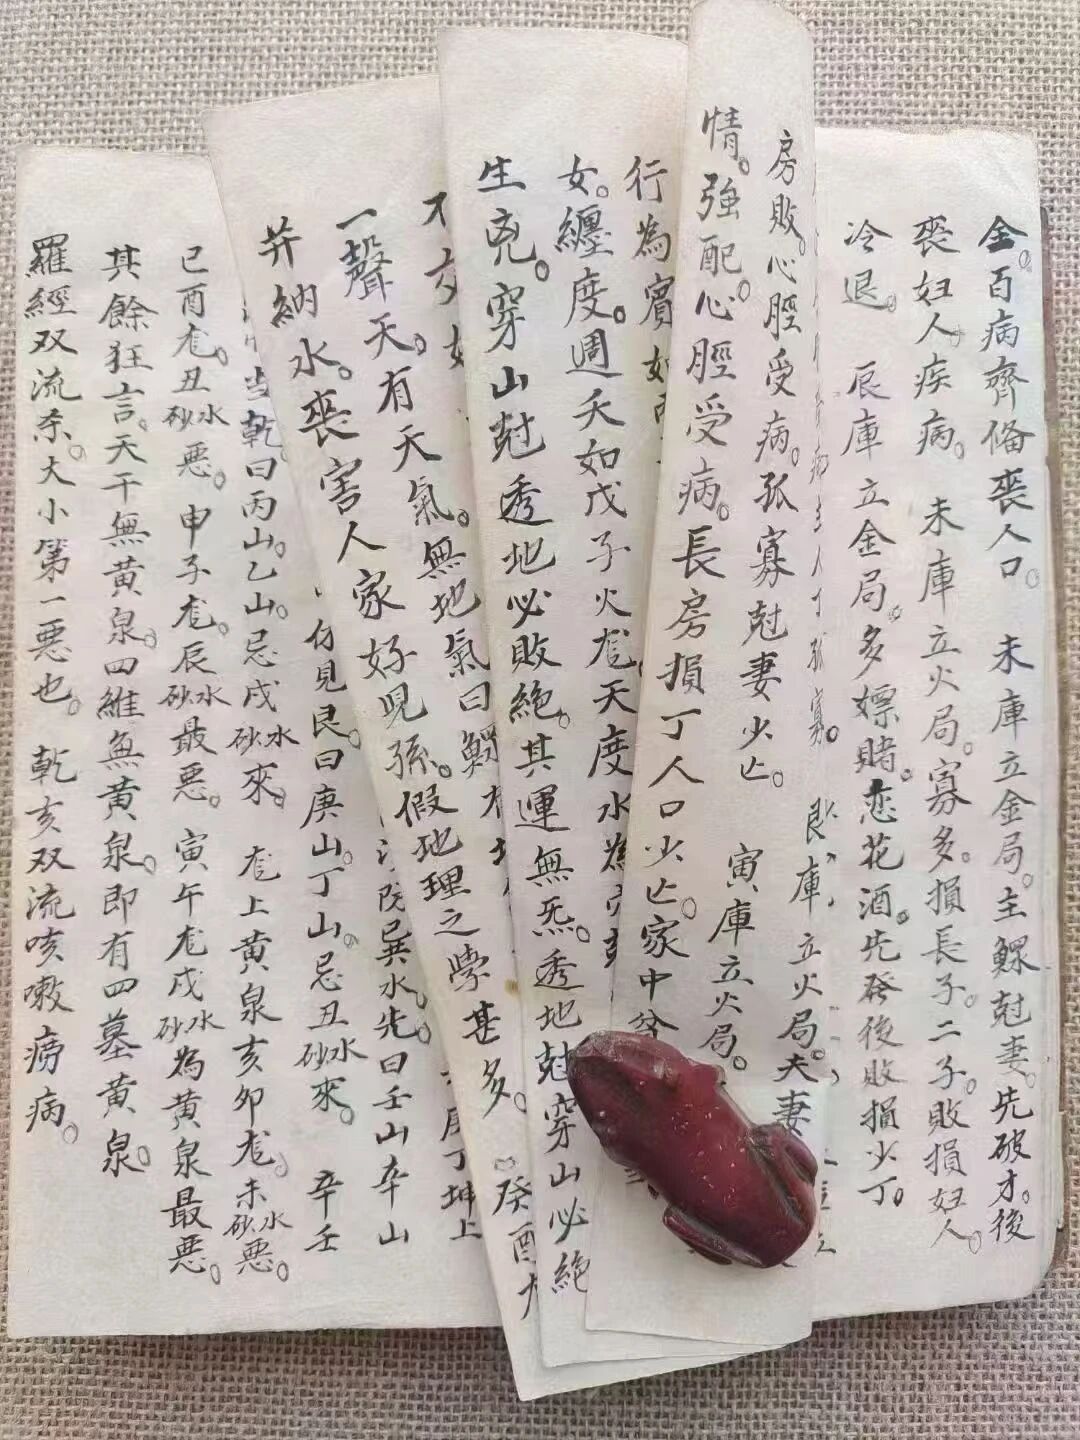 金。百病齊俻喪人口。 未庫立金局。主鰥尅妻。先破才。後
喪妇人疾病。 未庫立火局。寡多。損長子。二子。敗損妇人。
冷退。 辰庫立金局。多嫖賭。恋花酒。先發後敗損少丁。
艮庫，立火局。夫妻
房敗。心脛受病。孤寡尅妻少亡。 寅庫立火局。
情。強配。心脛受病。長房損丁人口少亡。家中
行為賓如
女。纏度。週天如戊子火龙。天度水為
生死。穿山尅透地必敗絕。其運無炁。透地尅穿山必絕
癸酉龙
一聲天。有天氣。無地氣曰鰥
丁坤上
并納水。喪害人家好兒孫。假地理之學甚多。
巽水。先曰壬山辛山
仔見艮。曰庚山。丁山。忌丑砂水來。 辛壬
當乾。曰丙山。乙山。忌戌砂水來。 龙上黃泉亥卯龙。未砂水惡。
巳酉龙。丑砂水惡。申子龙。辰砂水最惡。寅午龙戌砂水為黃泉最惡。
其餘狂言。天干無黃泉。四維無黃泉。即有四墓黃泉。
羅經双流杀。大小第一惡也。 乾亥双流咳嗽痨病。